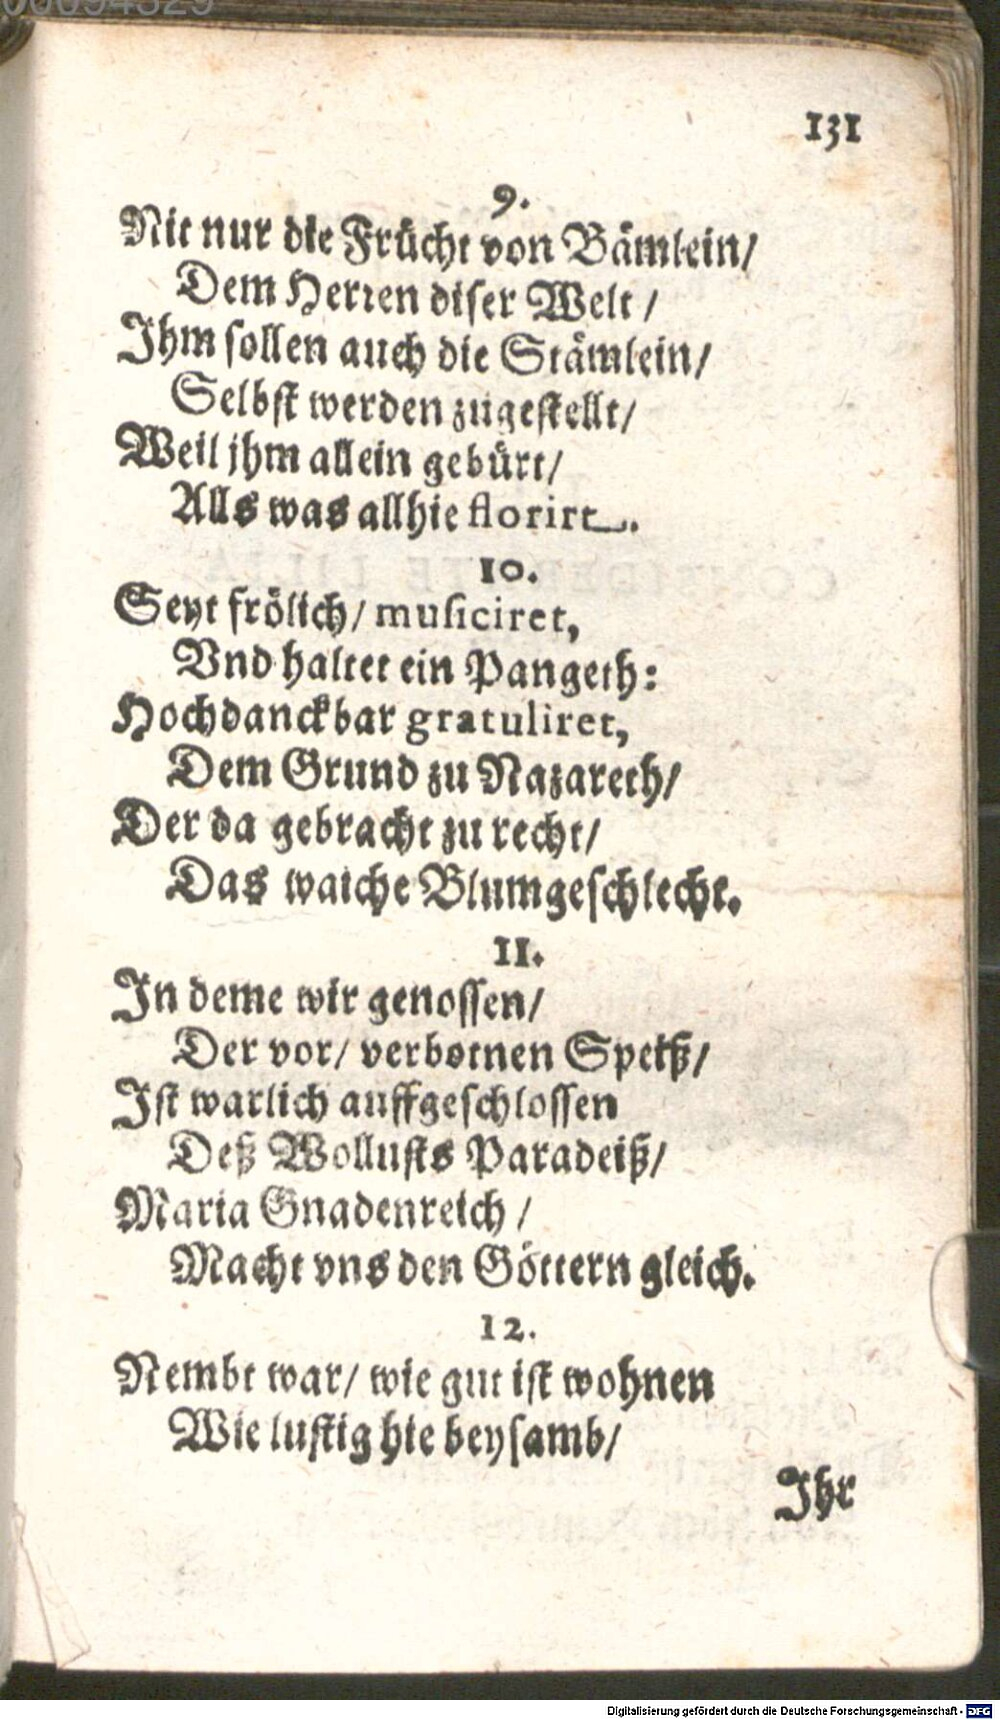 131
9.
Nit nur die Frücht von Bämlein/
Dem Herren diser Welt/
Ihm sollen auch die Stämlein/
Selbst werden zugestellt/
Weil jhm allein gebürt/
Alls was allhie florirt.
10.
Seyt frölich/ musiciret,
Vnd haltet ein Pangeth:
Hochdanckbar gratuliret,
Dem Grund zu Nazareth/
Der da gebracht zu recht/
Das waiche Blumgeschlecht.
11.
In deme wir genossen/
Der vor/ verbotnen Speiß/
Ist warlich auffgeschlossen
Deß Wollusts Paradeiß/
Maria Gnadenreich/
Macht vns den Göttern gleich.
12.
Nembt war/ wie gut ist wohnen
Wie lustig hie beysamb/
Ihr
Digitalisierung gefördert durch die Deutsche Forschungsgemeinschaft - DFG